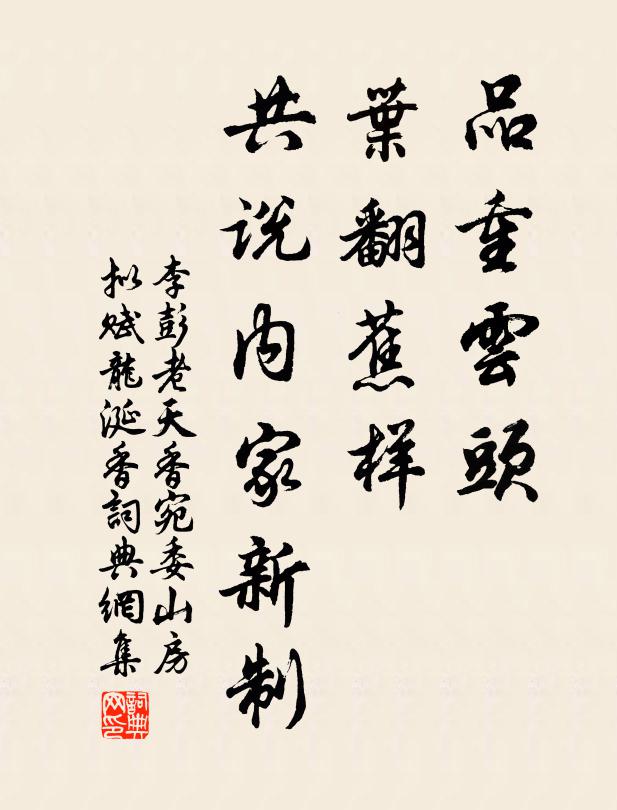 品重雲頭
葉翻蕉样
共说内家新制
李彭老天香宛委山房
拟赋龍涎香詞典網集
詞典网印